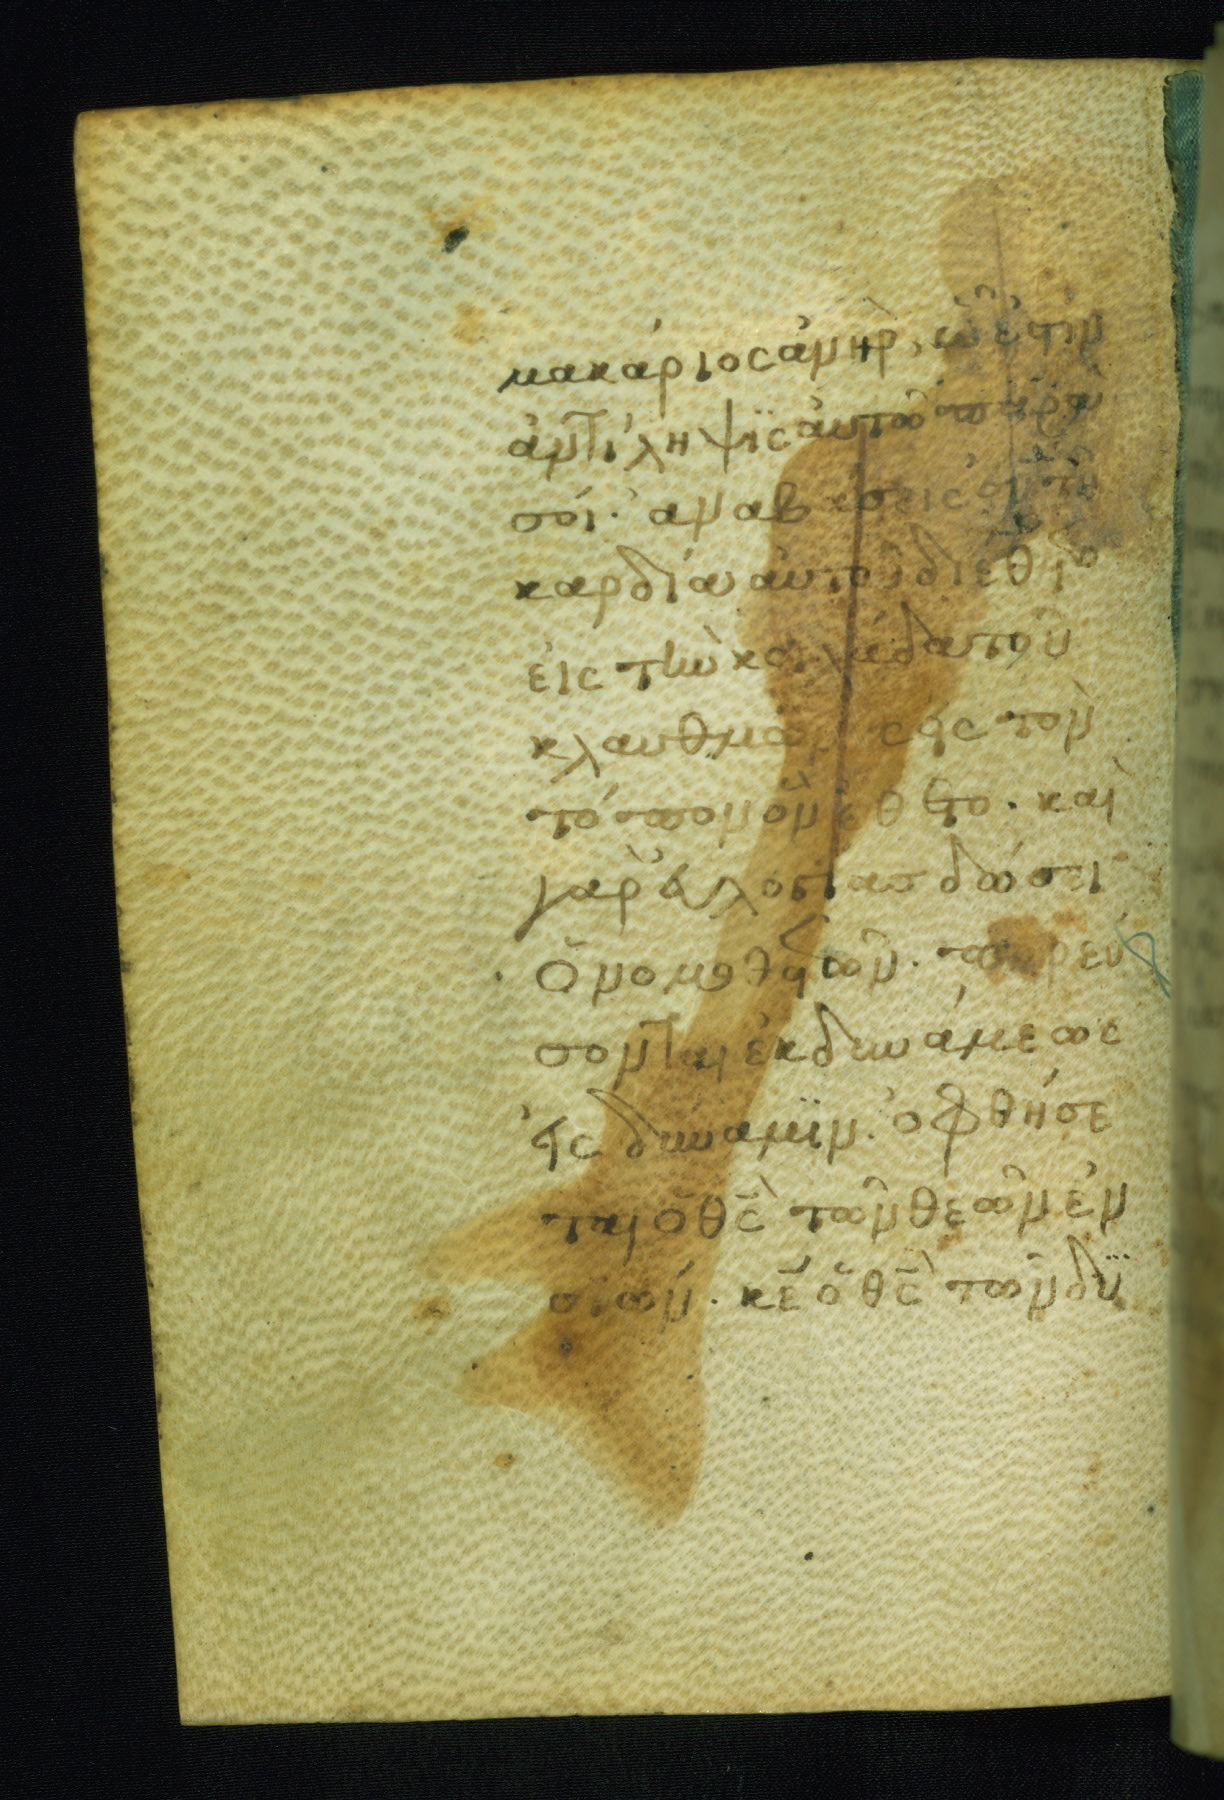 μακάριος ἀνὴρ, ὧ ἐστιν
ἀντίληψϊς ἀυτῶ παρα
σοί· ἀναβάσεις ἐν τῆ
καρδία ἀυτοῦ διέθετο
εἰς τὴν κοιλάδα τοῦ
κλαυθμῶνος εἰς τὸν
τόπον ὃν ἔθετο· καὶ
γὰρ ἐυλογίας δώσει
ὁ νομοθετῶν· πορεύ
σονται ἐκ δυνάμεως
εἰς δύναμϊν· ὀφθήσε
ται ὁ θς τῶν θεῶν ἐν
σιών· κε ὁ θς τῶν δϋ